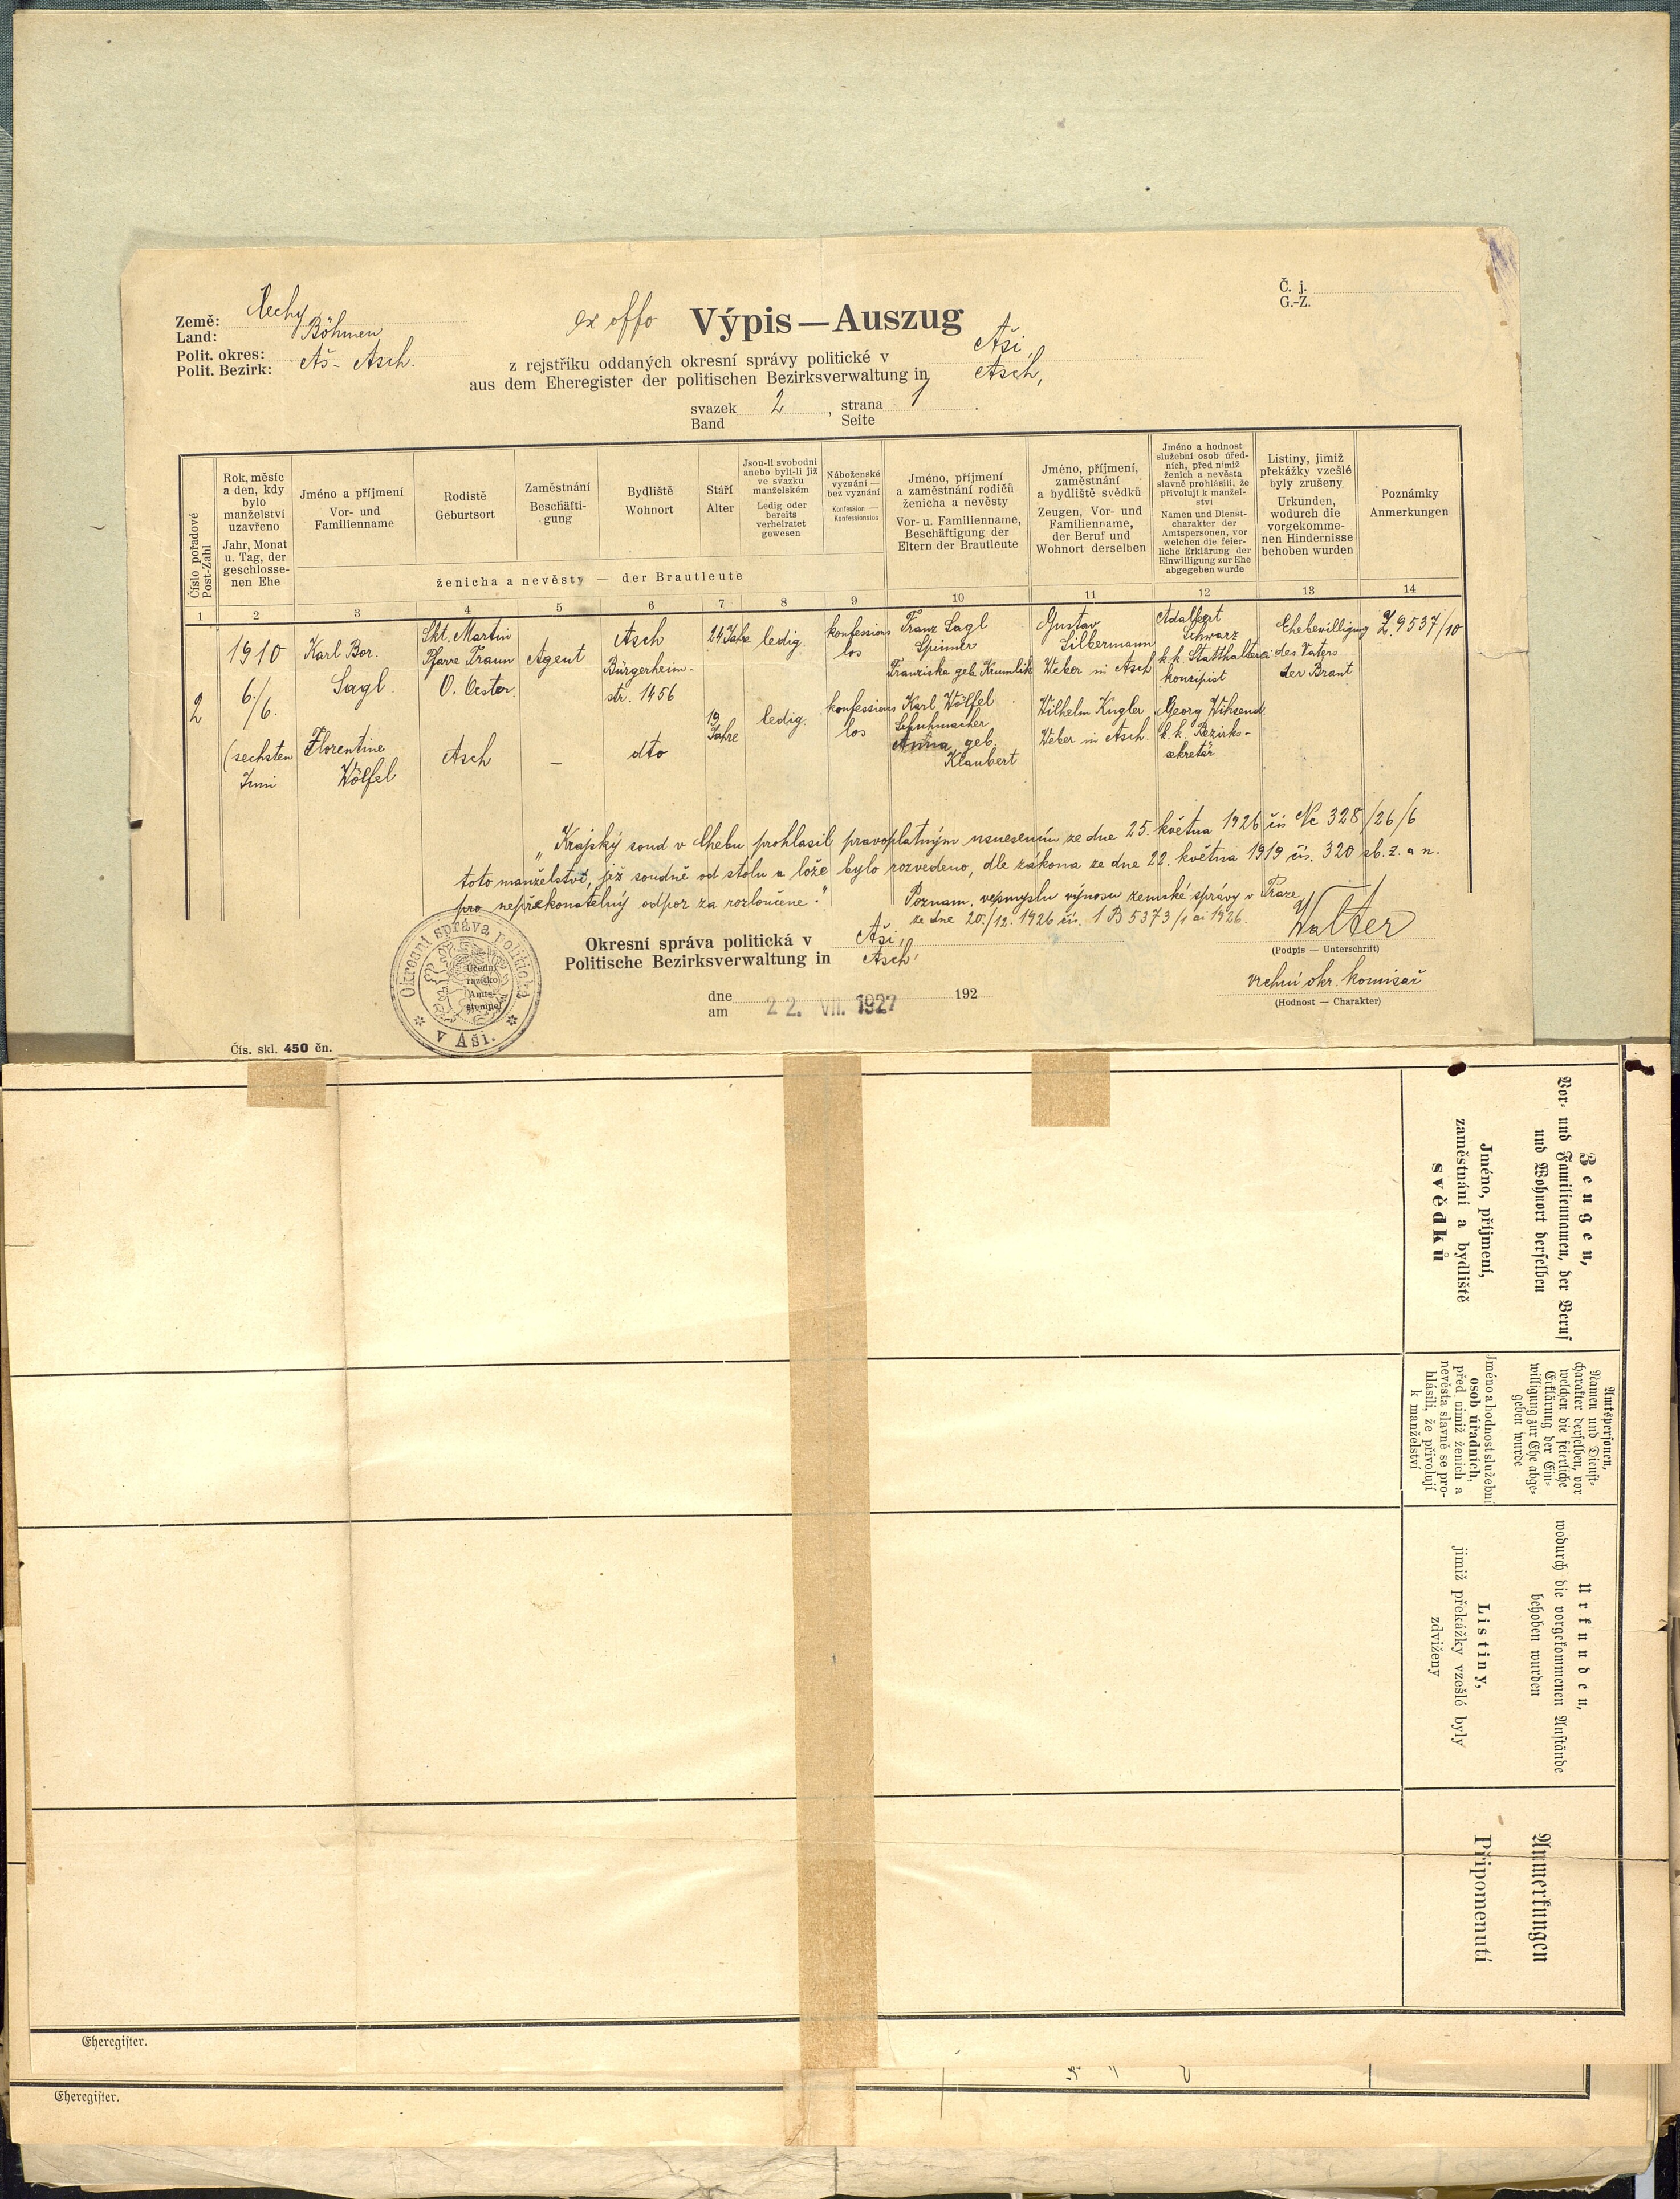 Č. j.
G.-Z.
Země: Čechy
Land: Böhmen
Polit. okres: Aš - Asch.
Polit. Bezirk:
ex offo Výpis — Auszug
z rejstříku oddaných okresní správy politické v Aši,
aus dem Eheregister der politischen Bezirksverwaltung in Asch,
svazek 2, strana 1
Band Seite
Číslo pořadové
Post-Zahl
Rok, měsíc
a den, kdy
bylo
manželství
uzavřeno
Jahr, Monat
u. Tag, der
geschlosse-
nen Ehe
Jméno a příjmení
Vor- und
Familienname
Rodiště
Geburtsort
Zaměstnání
Beschäfti-
gung
Bydliště
Wohnort
Stáří
Alter
Jsou-li svobodni
anebo byli-li již
ve svazku
manželském
Ledig oder
bereits
verheiratet
gewesen
Náboženské
vyznání —
bez vyznání
Konfession —
Konfessionslos
ženicha a nevěsty — der Brautleute
Jméno, příjmení
a zaměstnání rodičů
ženicha a nevěsty
Vor- u. Familienname,
Beschäftigung der
Eltern der Brautleute
Jméno, příjmení,
zaměstnání
a bydliště svědků
Zeugen, Vor- und
Familienname,
der Beruf und
Wohnort derselben
Jméno a hodnost
služební osob úřed-
ních, před nimiž
ženich a nevěsta
slavně prohlásili, že
přivolují k manžel-
ství
Namen und Dienst-
charakter der
Amtspersonen, vor
welchen die feier-
liche Erklärung der
Einwilligung zur Ehe
abgegeben wurde
Listiny, jimiž
překážky vzešlé
byly zrušeny
Urkunden,
wodurch die
vorgekomme-
nen Hindernisse
behoben wurden
Poznámky
Anmerkungen
1 2 3 4 5 6 7 8 9 10 11 12 13 14
2
1910
6./
/6.
(sechsten
Juni
Karl Bor.
Sagl.
Skt. Martin
Pfarre Traun
O. Oester.
Agent
Asch
Bürgerheim-
str. 1456
24 Jahre
ledig.
konfessions
los
Franz Sagl
Spinner
Franziska geb. Krumlik
Gustav
Silbermann
Weber in Asch
Adalbert
Schwarz
k.k. Statthalterei
konzipist
Ehebewilligung
des Vaters
der Braut
Z. 9537/10
Florentine
Wölfel
Asch
—
dto
19
Jahre
ledig.
konfessions
los
Karl Wölfel
Schuhmacher
Anna geb.
Klaubert
Wilhelm Kugler
Weber in Asch.
Georg Wihsend
k.k. Bezirks-
sekretär
„Krajský soud v Chebu prohlásil pravoplatným usnesením ze dne 25. května 1926 čís Nc 328/26/6
toto manželství, jež soudně od stolu a lože bylo rozvedeno, dle zákona ze dne 22. května 1919 čís. 320 sb. z. a n.
pro nepřekonatelný odpor za rozloučené."
Poznam. ve smyslu výnosu zemské správy v Praze
ze dne 20./12. 1926 čís. 1 B 5373/1 ai 1926.
Okresní správa politická v Aši,
Politische Bezirksverwaltung in Asch,
Walter
(Podpis — Unterschrift)
vrchní okr. komisař
(Hodnost — Charakter)
dne
am
22. VII. 1927 192
Okresní správa politická
v Aši.
Úřední
razítko
Amts-
stempel
Čís. skl. 450 čn.
Zeugen,
Vor- und Familiennamen, der Beruf
und Wohnort derselben
Jméno, příjmení,
zaměstnání a bydliště
svědků
Amtspersonen,
Namen und Dienst-
charakter derselben, vor
welchen die feierliche
Erklärung der Ein-
willigung zur Ehe abge-
geben wurde
Jméno a hodnost služební
osob úřadních,
před nimiž ženich a
nevěsta slavně se pro-
hlásili, že přivolují
k manželství
Urkunden,
wodurch die vorgekommenen Anstände
behoben wurden
Listiny,
jimiž překážky vzešlé byly
zdviženy
Anmerkungen
Připomenutí
Eheregister.
Eheregister.